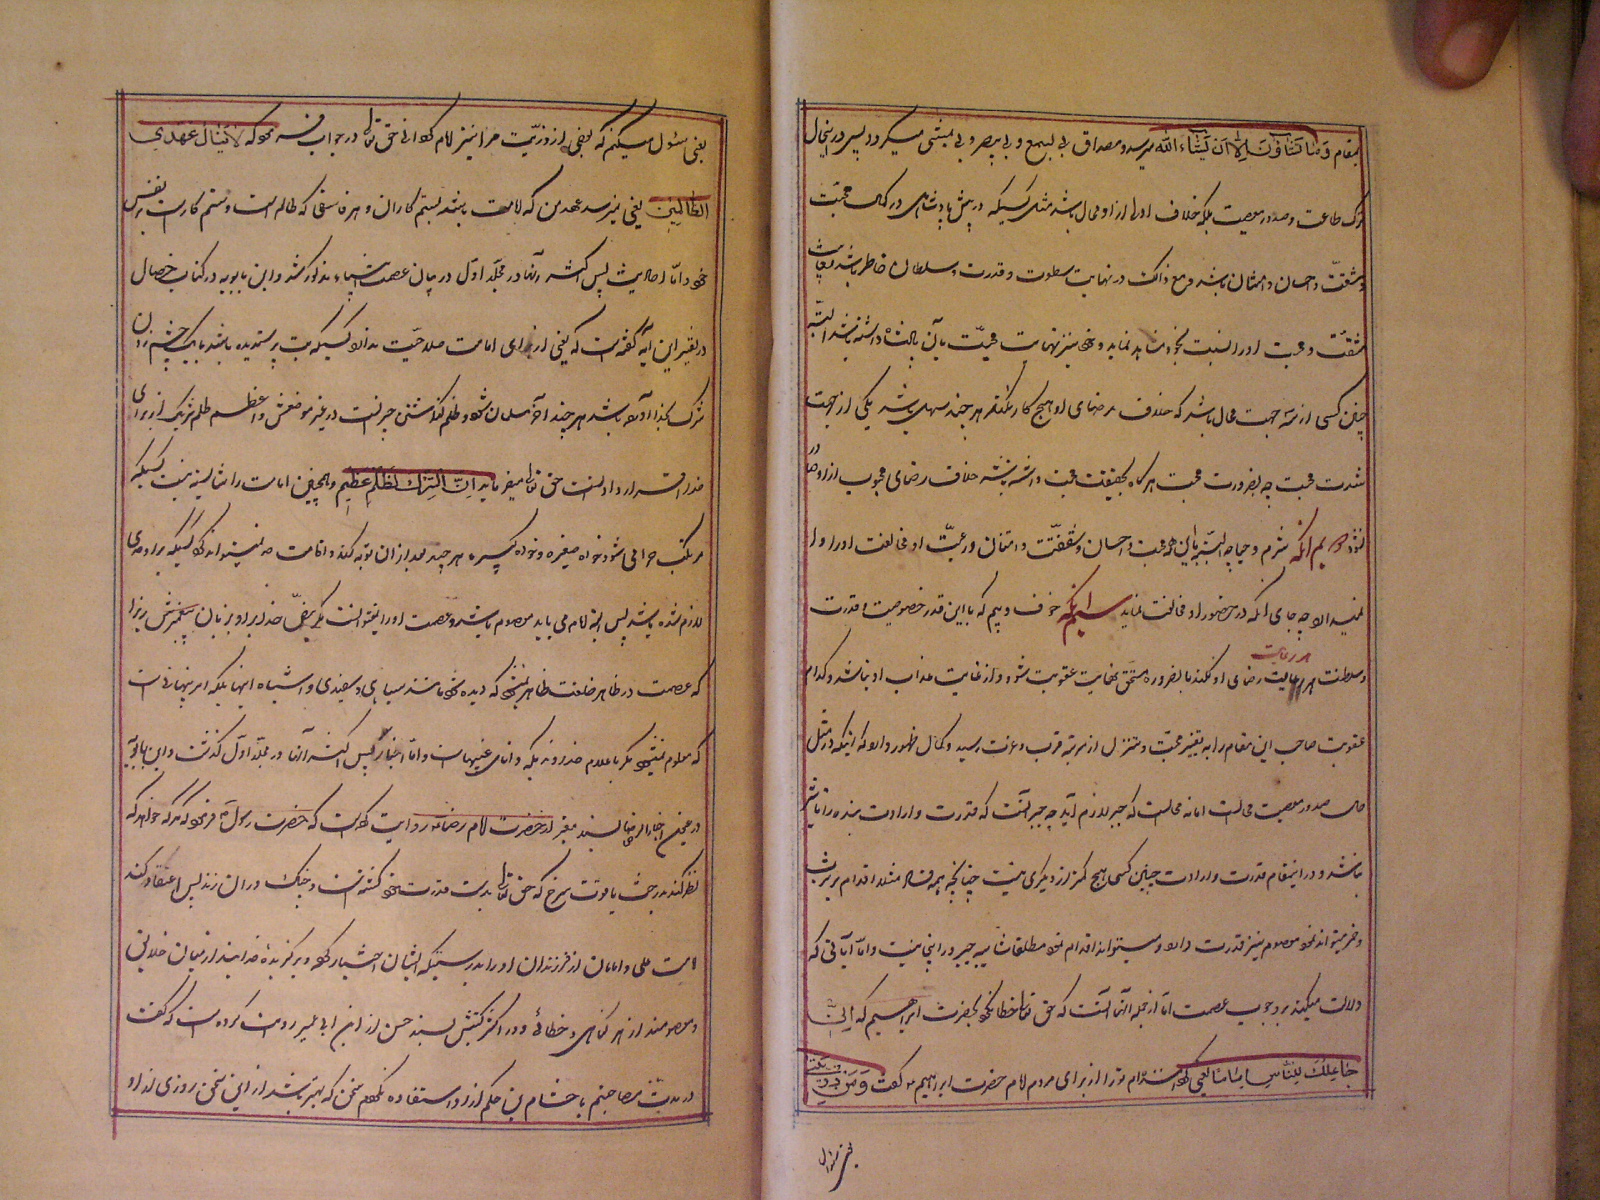 بمقام وَمَا تَشَاؤُنَ اِلَّا اَنْ یَشَاءَ اللّٰه میرسد و مصداق بی یسمع و بی یبصر و بی یمشی میگردد پس درینحال
ترک طاعت و صدور معصیت بلکه خلاف اولی ازو محال باشد مثل کسیکه در پیش پادشاهی در کمال محبت
و شفقت و احسان و امتنان باشد و مع ذلک در نهایت سطوت و قدرت و سلطان حاضر باشد
شفقت و محبت او را نسبت بخود مشاهده نماید و خود نیز نهایت محبت بآن پادشاه داشته باشد البته
چنین کسی از سه جهت محال باشد که خلاف رضای او هیچ کار بکند هر چند سهل باشد یکی از جهت
شدت محبت چه بضرورت محبت هرگاه بحقیقت محبت داشته باشد خلاف رضای محبوب ازو صادر
نشود دویم آنکه شرم و حیا چه البته باین همه محبت و احسان و شفقت و امتنان و رعیت او مخالفت او را
نمیدهد چه جای آنکه در حضور او مخالفت نماید سیم آنکه خوف و بیم که با این قدر خصوصیت و قدرت
و سلطنت هر رعایت رضای او نکند بالضروره مستحق نهایت عقوبت شود و از غایت عذاب او نباشد و کدام
عقوبت صاحب این مقام را به تغییر محبت و تنزل از مرتبه قرب و عزت رسد و کمال ظهور دارد که اینکه در مثل
حال صدور معصیت محالست اما نه محالیست که جبر لازم آید چه جبر آنست که قدرت و ارادت بنده را تاثیر
نباشد و در اینمقام قدرت و ارادت چنین کسی هیچ کمتر از دیگری نیست چنانچه همه فساق مثلا اقدام بر شرب
و خمر میتواند نمود معصوم نیز قدرت دارد و میتواند اقدام نمود مطلقا شایبه جبر در اینجا نیست و اما آیاتی که
دلالت میکند بر وجوب عصمت امام از جمله آنها آنست که حق تعالی خطاب نمود بحضرت ابراهیم که اِنِّی
جَاعِلُکَ لِلنَّاسِ اِمَامًا یعنی گردانیدم ترا از برای مردم امام حضرت ابراهیم گفت وَمِنْ ذُرِّیَّتِی
یعنی سئوال
یعنی سئول میکنم که بعضی از ذریت مرا نیز امام گردانی حق تعالی در جواب فرموده که لَا یَنَالُ عَهْدِی
الظَّالِمِین یعنی نمیرسد عهد من که امامت باشد بستم کاران و هر فاسقی که ظالم است و ستم کار است بر نفس
خود و اما احادیث پس گذشته آنها در مجلد اول در بیان عصمت انبیاء مذکور شد و ابن بابویه در کتاب خصال
در تفسیر این آیه گفته است که یعنی از برای امامت صلاحیت ندارد کسیکه بت پرستیده باشد یا بیک چشم زدن
شرک بخدا آورده باشد هر چند آخر مسلمان شود و ظلم گذاشتن چیزیست در غیر موضعش و اعظم ظلم شریک از برای
خدا قرار دادنست حق تعالی میفرماید اِنَّ الشِّرْکَ لَظُلْمٌ عَظِیمٌ و همچنین امامت را شایسته نیست کسیکه
مرتکب حرامی شود خواه صغیره و خواه کبیره هر چند بعد از آن توبه کند و اقامت حد نمیتواند کرد کسیکه بر او حدی
لازم شده باشد پس البته امام می باید معصوم باشد و عصمت او را نمیتوانست مگر بنص خدا بر او بر زبان پیغمبرش زیرا
که عصمت در ظاهر خلقت ظاهر نمیشود که دیده شود مانند سیاهی و سفیدی و اشباه اینها بلکه امر پنهانی است
که معلوم نمیشود مگر باعلام خداوندیکه دانای غیبهاست و اما اخبار پس اکثر آنها در مجلد اول گذشت و ابن بابویه
در عیون اخبار الرضا بسند معتبر از حضرت امام رضا روایت کرده است که حضرت رسول فرموده که هر که خواهد که
نظر کند بدرخت یاقوت سرخ که حق تعالی بدست قدرت خود کشته است و چنگ در آن زند پس اعتقاد کند
امامت علی و امامان از فرزندان او را بدرستیکه ایشان اختیار کرده و برگزیدهٔ خدایند از میان خلایق
و معصومند از هر گناهی و خطائی و در اکثر کتبش بسند حسن از ابن ابی عمیر روایت کرده است که گفت
در مدت مصاحبتم با هشام بن حکم از او استفاده نکردم سخنی که بهتر باشد از این سخن روزی از او